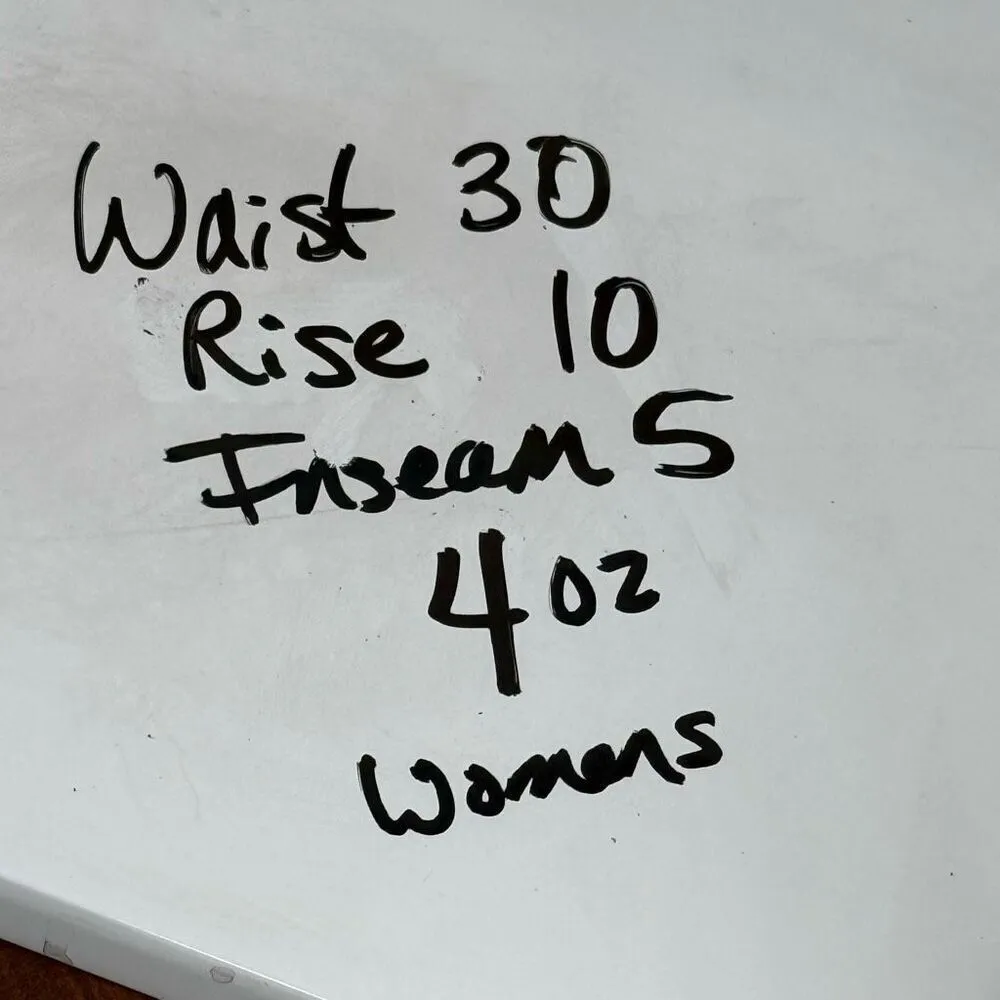 Waist 30
Rise 10
Inseam 5
4 oz
Womens